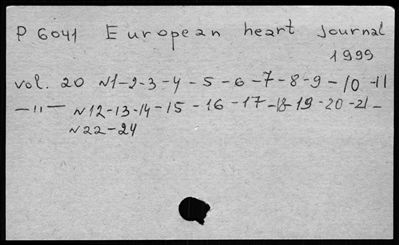 P 6041 European heart Journal
1999
vol. 20 N1-2-3-4-5-6-7-8-9-10-11
—"— N12-13-14-15-16-17-18-19-20-21-
N22-24